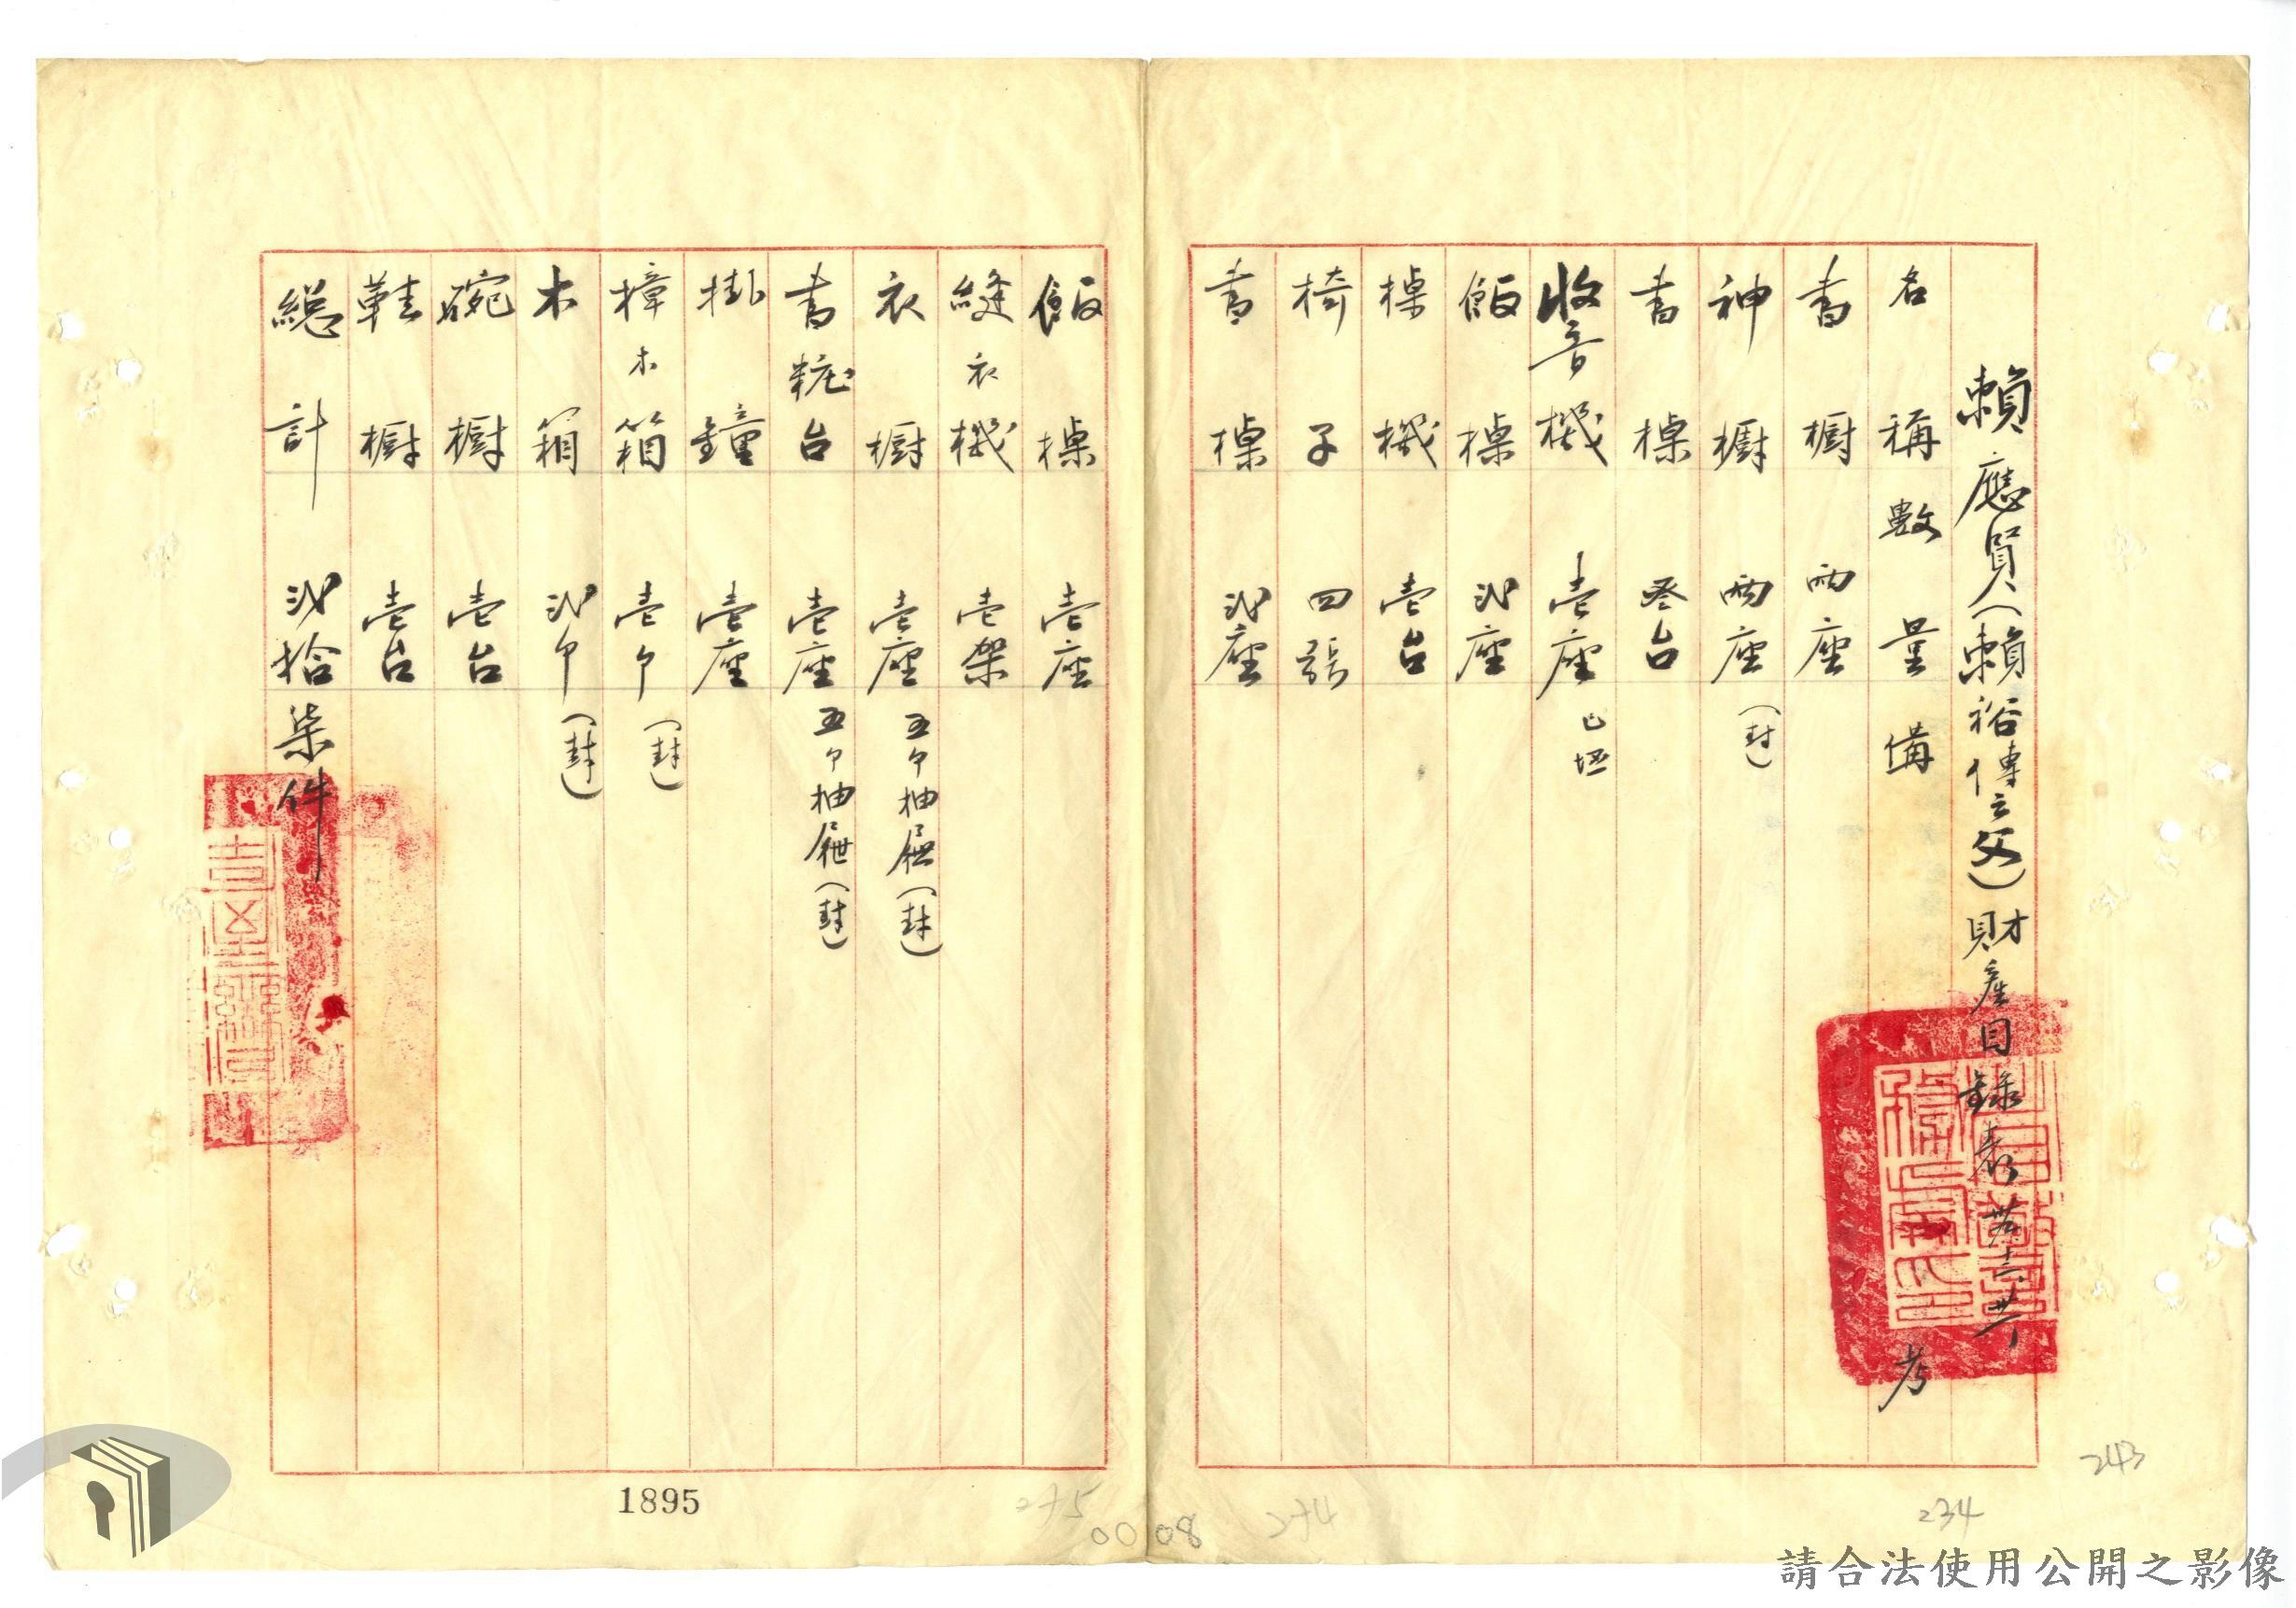 賴應賢(賴裕傳之父)財產目錄表
名稱數量備考
書橱 兩座
神橱 兩座 (封)
書槕 叁台
收音機 壹座 已壊
飯槕 弍座
槕機 壹台
椅子 四張
書槕 弍座
飯槕 壹座
縫衣機 壹架
衣橱 壹座 五个抽屜(封)
書粧台 壹座 五个抽屜(封)
掛鐘 壹座
樟木箱 壹个 (封)
木箱 弍个 (封)
碗橱 壹台
鞋橱 壹台
總計 弍拾柒件
1895
275
0008
274
234
243
請合法使用公開之影像